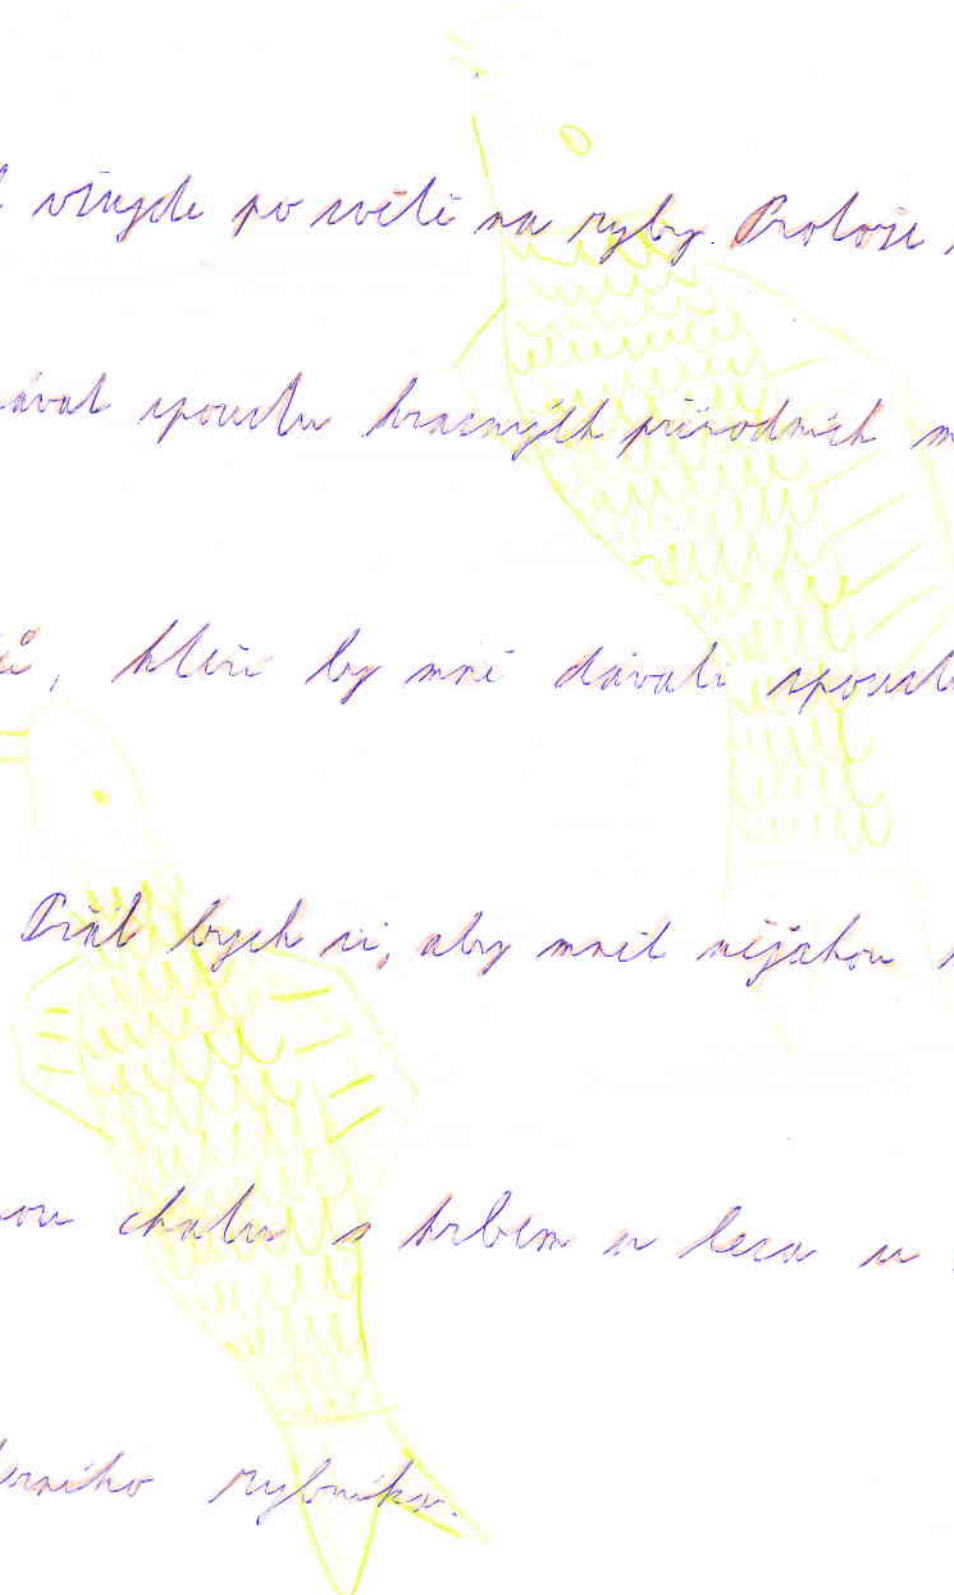 všude po světě na ryby. Protože
ávat spoustu krásných přírodních
ů, kteří by mně dávali spoustu
Přál bych si, aby měl nějakou
ou chatu s krbem u lesa u
ního rybníka.